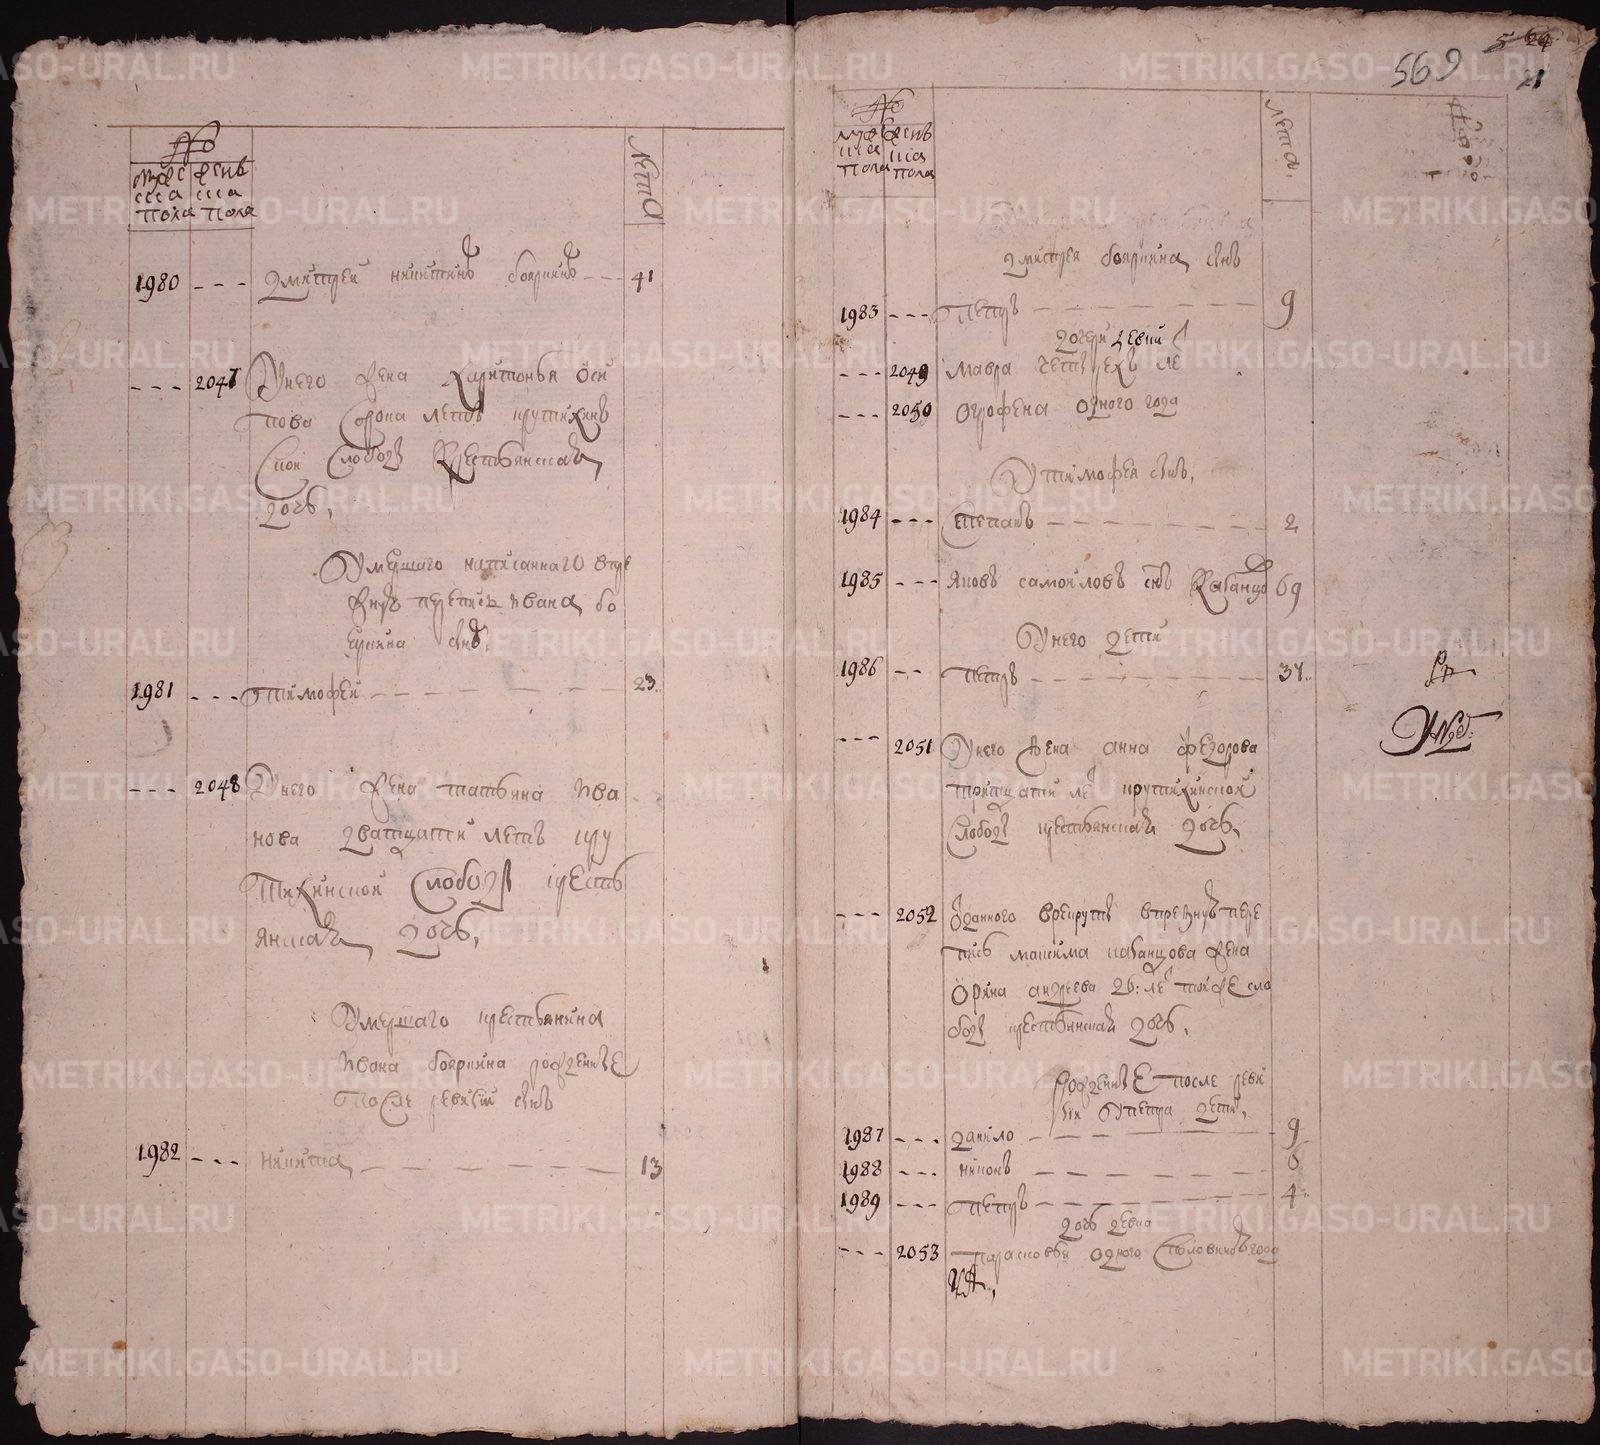 METRIKI.GASO-URAL.RU
№
мужеска пола
женска пола
лета
1980 - - - Дмитрей никитинъ бояркинъ - - - 41
- - - 2047 У него жена Харитонья оси
пова сорока летъ крутихин
ской слободы крестьянская
дочь,
Умершаго написаннаго впре
жную перепись ивана бо
яркина сынъ
1981 - - - тимофеи - - - 23.
- - - 2048 У него жена татьяна ива
нова дватцати летъ кру
тихинской слободы кресть
янская дочь,
Умершаго крестьянина
ивана бояркина рожденные
после ревизии сынъ
1982 - - - никита - - - 13
569
5 24
21
№
мужеска пола
женска пола
лета.
дмитрея бояркина сынъ
1983 - - - петръ - - - 9
дочери девки
- - - 2049 мавра четырехъ ле
- - - 2050 огрофена одного года
У тимофея сынъ,
1984 - - - степанъ - - - 2
1985 - - - яковъ самоиловъ сынъ Кабанцо 69
У него дети
1986 - - петръ - - - 37.
- - - 2051 У него жена анна федорова
тритцати ле крутихинской
слободы крестьянская дочь,
- - - 2052 Отданного врекруты впрежную пере
пись максима кабанцова жена
орина андреева 26: ле тойже сло
боды крестьянская дочь,
рожденные после реви
зии У петра дети,
1987 - - - данило - - - 9
1988 - - - никонъ - - - 6
1989 - - - петръ - - - 4
дочь девка
- - - 2053 парасковья одного споловиною года